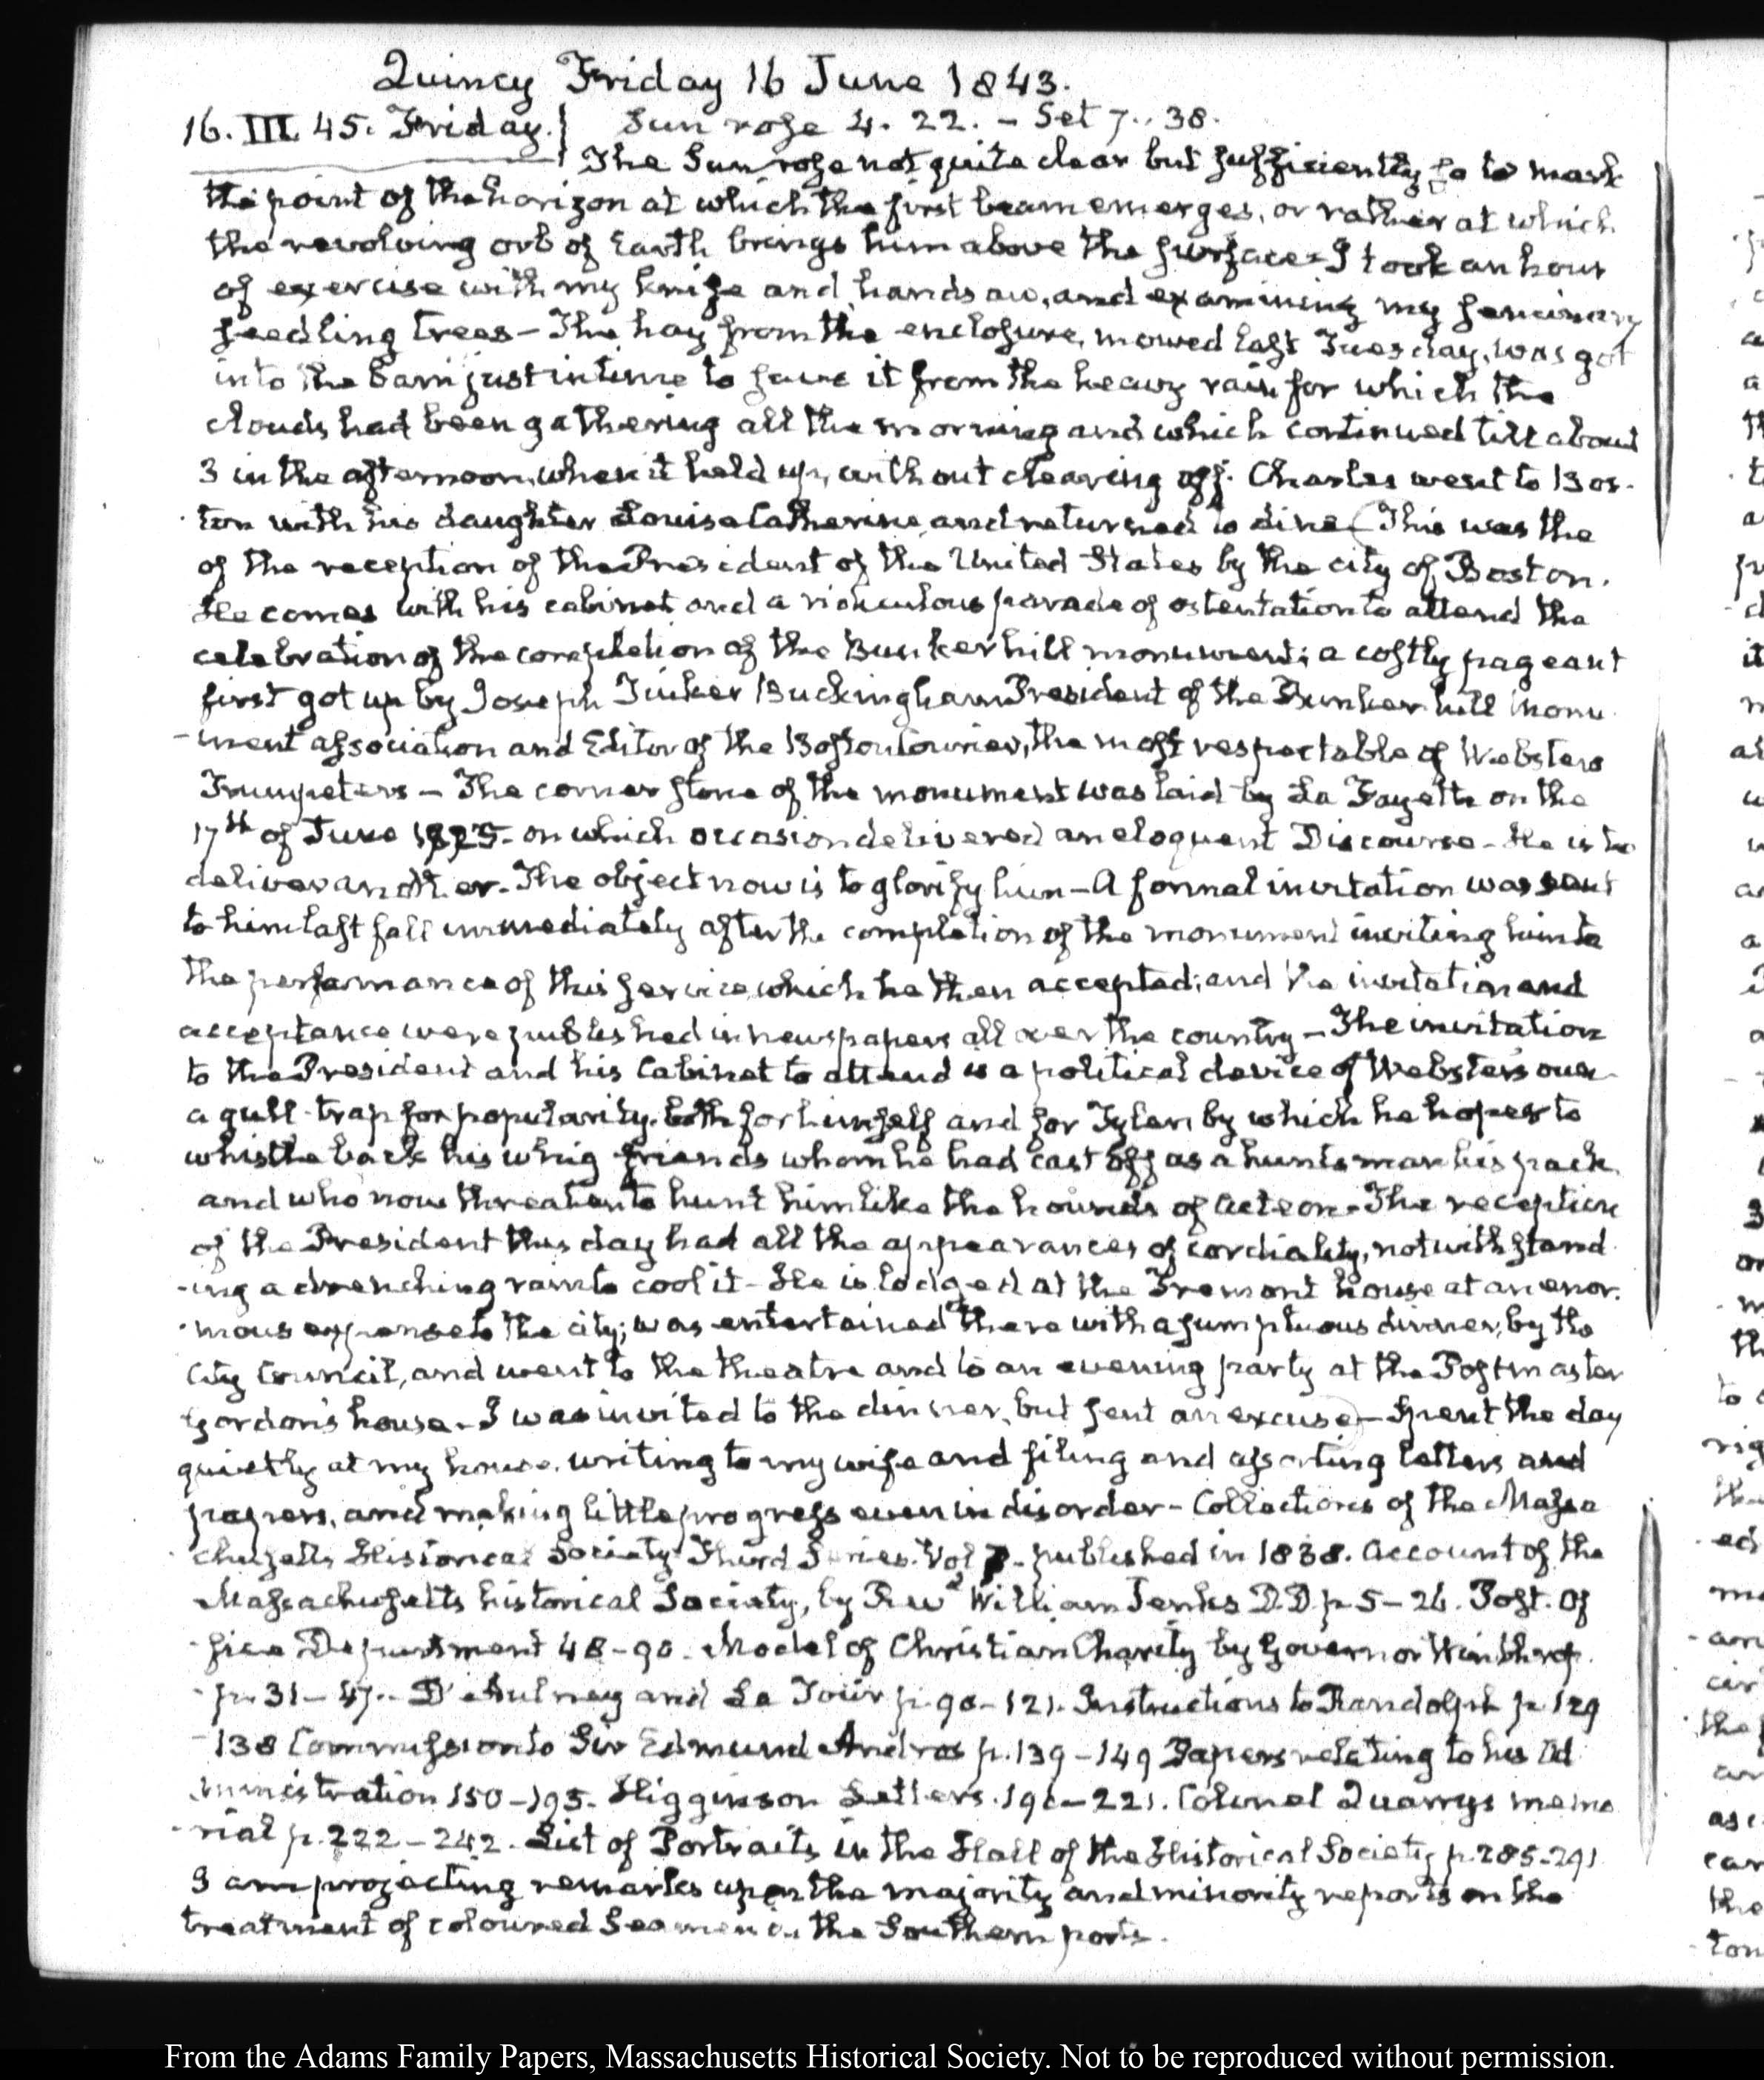 Quincy Friday 16 June 1843.
16. III. 45. Friday. Sun rose 4. 22. – Set 7.. 38.
The Sun rose not quite clear but sufficiently so to mark
the point of the horizon at which the first beam emerges, or rather at which
the revolving orb of Earth brings him above the surface – I took an hour
of exercise with my knife and handsaw, and examining my seminary
seedling trees – The hay from the enclosure, mowed last Tuesday, was got
into the barn just in time to save it from the heavy rain for which the
clouds had been gathering all the morning and which continued till about
3 in the afternoon, when it held up, without clearing off. Charles went to Bos-
-ton with his daughter Louisa Catherine, and returned to dine (This was the
of the reception of the President of the United States by the city of Boston.
He comes with his cabinet and a ridiculous parade of ostentation to attend the
celebration of the completion of the Bunker hill monument; a costly pageant
first got up by Joseph Tinker Buckingham President of the Bunker hill Monu-
-ment association and Editor of the Boston Courier, the most respectable of Websters
Trumpeters – The corner stone of the monument was laid by La Fayette on the
17th of June 1825. on which occasion delivered an eloquent Discourse – He is to
deliver another. The object now is to glorify him – A formal invitation was sent
to him last fall immediately after the completion of the monument inviting him to
the performance of this service, which he then accepted; and the invitation and
acceptance were published in newspapers all over the country – The invitation
to the President and his Cabinet to attend is a political device of Webster's own
a gull-trap for popularity, both for himself and for Tyler, by which he hopes to
whistle back his whig friends whom he had cast off as a huntsman his pack,
and who now threaten to hunt him like the hounds of Acteon – The reception
of the President this day had all the appearances of cordiality, notwithstand
-ing a drenching rain to cool it – He is lodged at the Tremont house at an enor-
-mous expense to the city; was entertained there with a sumptuous dinner, by the
City Council, and went to the theatre and to an evening party at the Postmaster
Gordon's house – I was invited to the dinner, but sent an excuse) – Spent the day
quietly at my house, writing to my wife and filing and assorting letters and
papers, and making little progress even in disorder – Collections of the Massa
chusetts Historical Society Third Series. Vol 7. published in 1838. Account of the
Massachusetts historical Society, by Revd William Jenks D.D. p 5 – 26. Post. Of
-fice Department 48 – 90. Model of Christian Charity by Governor Winthrop.
p. 31 – 47. – D'Aulnay and La Tour p. 90 – 121. Instructions to Randolph p 129
– 138 Commission to Sir Edmund Andros p. 139 – 149 Papers relating to his Ad
ministration 150 – 195. Higginson Letters. 196 – 221. Colonel Quarrys memo
-rial p. 222 – 242. List of Portraits in the Hall of the Historical Society p. 285-291
I am projecting remarks upon the majority and minority reports on the
treatment of coloured Seamen in the Southern ports.
From the Adams Family Papers, Massachusetts Historical Society. Not to be reproduced without permission.